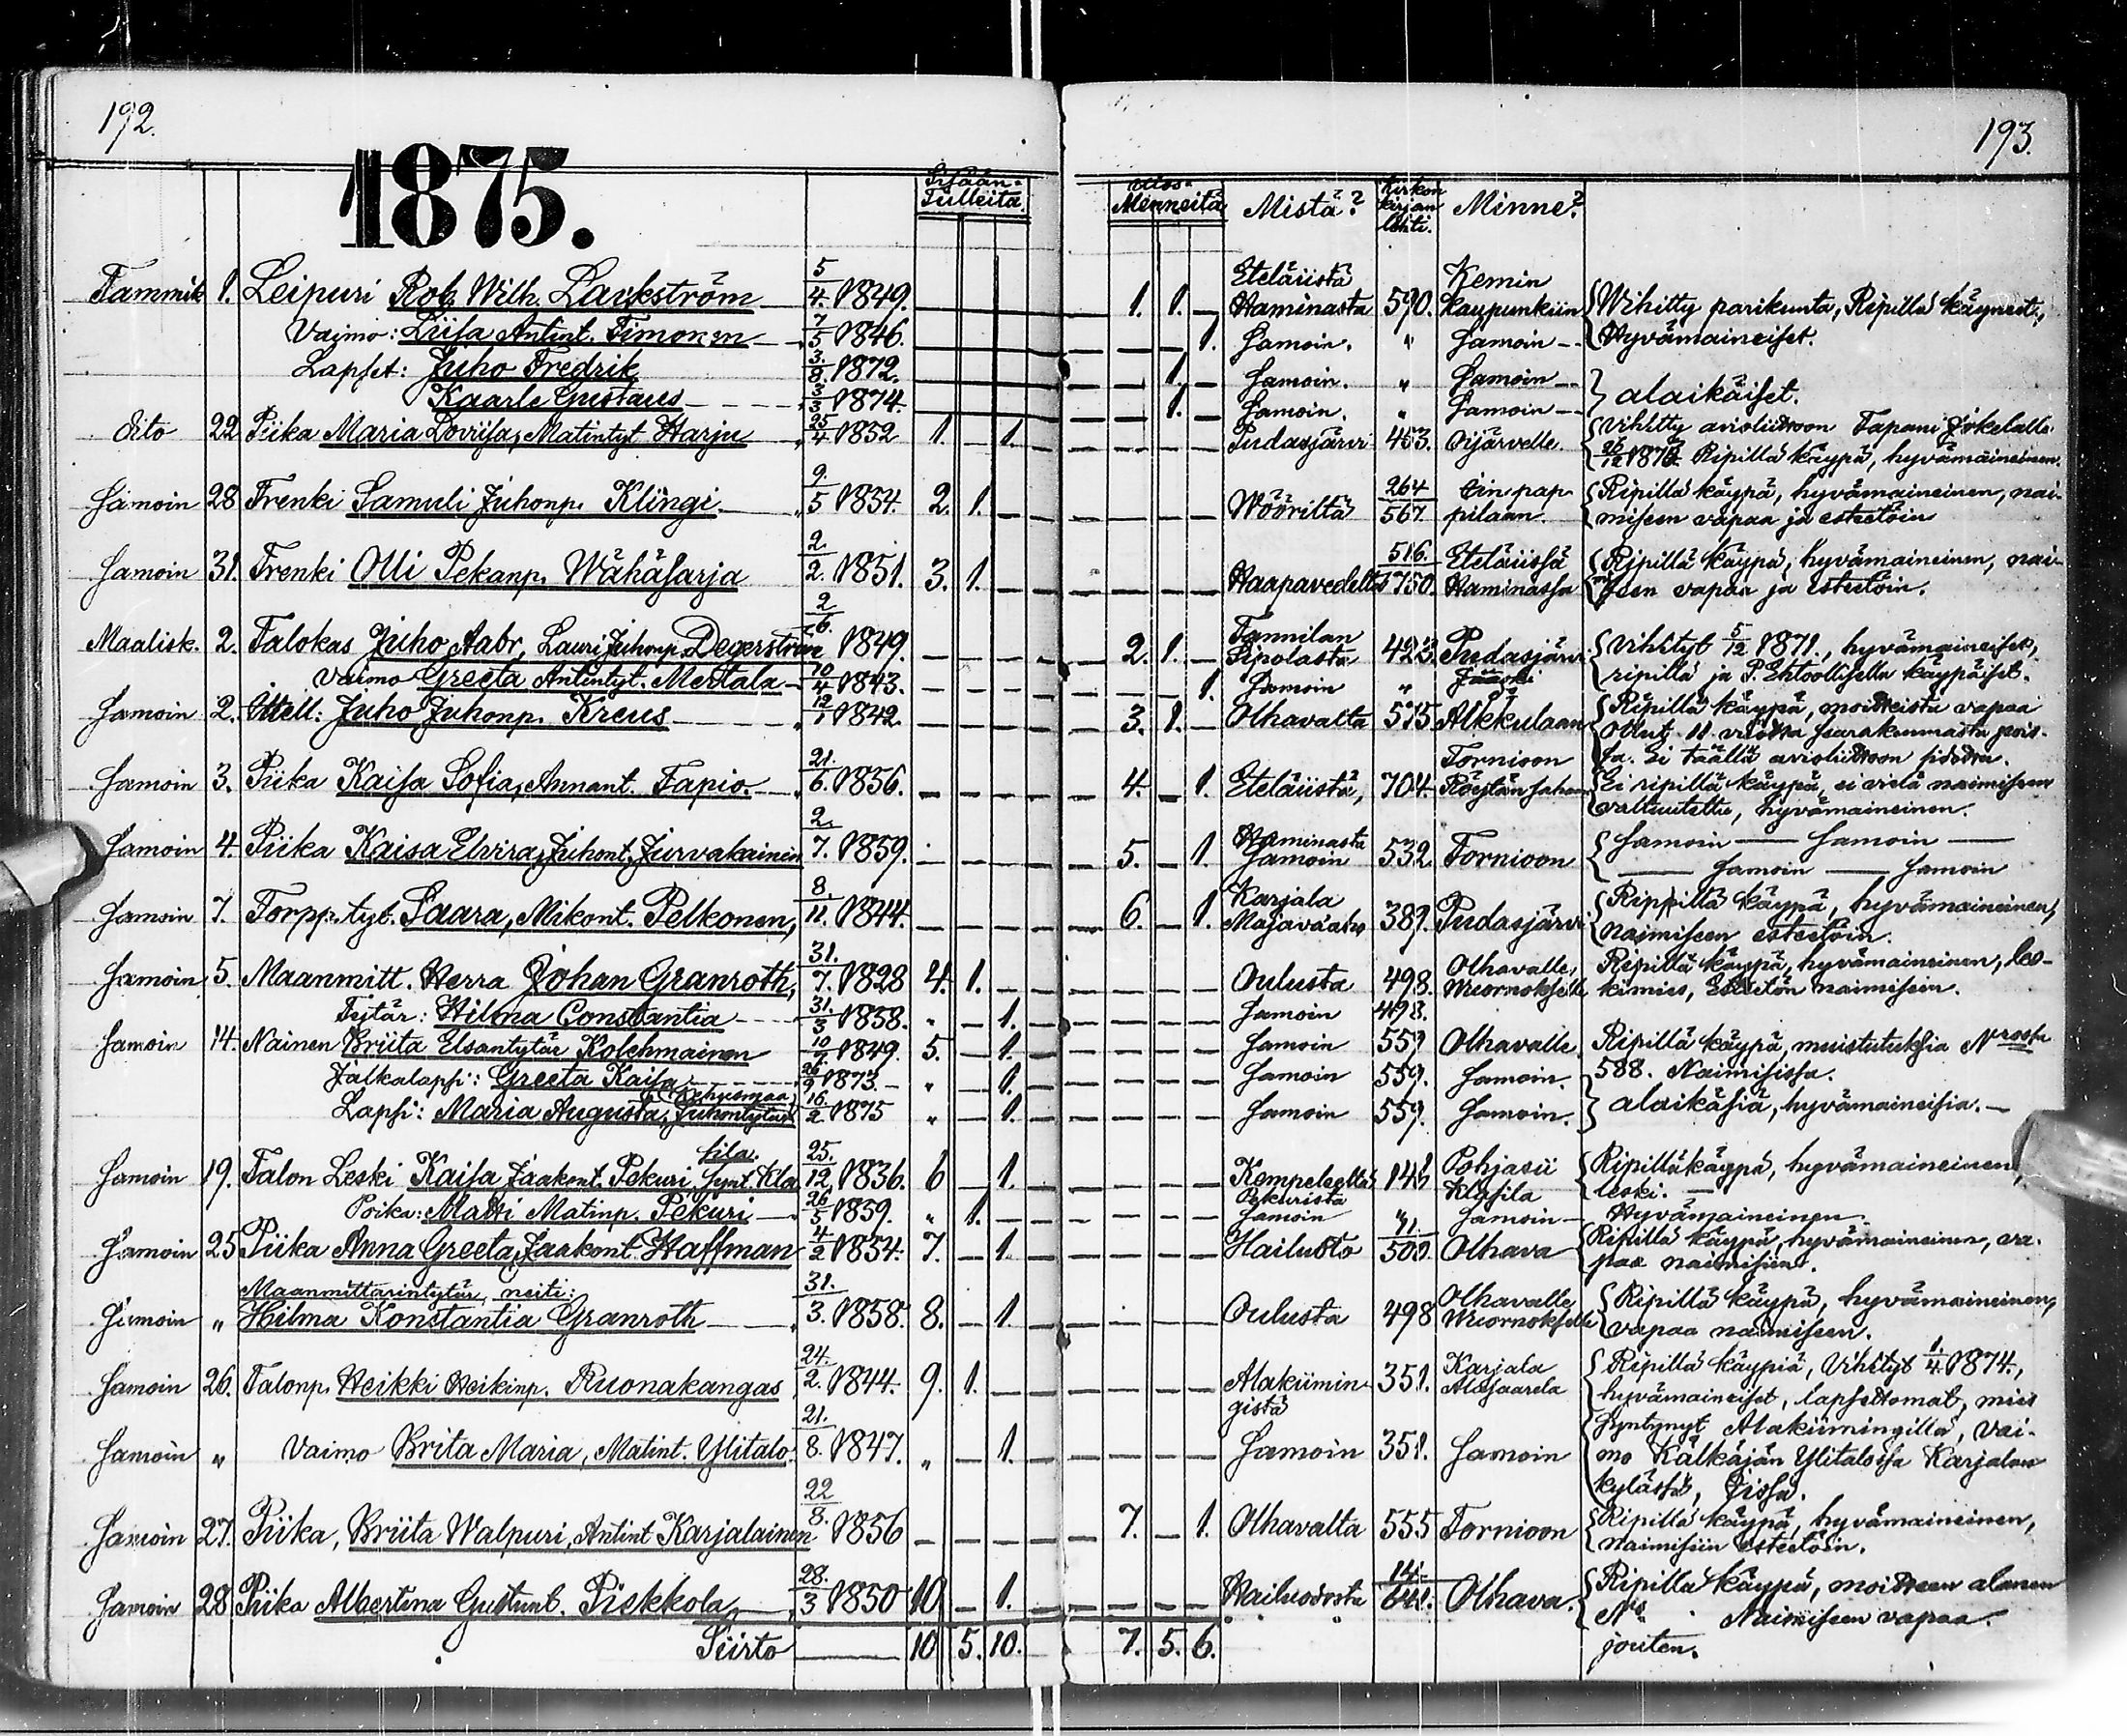 192.
193.
1875.
Sisään-
Tulleita.
Ulos-
Menneitä
Mistä?
Kirkon
kirjan
lehti.
Minne?
Tammik 1. Leipuri Rob. Wilh. Laukström 5/4. 1849. 1. 1. Eteläiistä Haminasta 590. Kemin kaupunkiin Wihitty parikunta, Ripillä käyneet,
Vaimo: Liisa Antint. Timonen 7/5 1846. 1. Samoin. " Samoin Hyvämaineiset.
Lapset: Juho Fredrik 3./8. 1872. 1. Samoin. " Samoin
Kaarle Gustavus 3/3 1874. 1. Samoin. " Samoin alaikäiset.
dito 22 Piika Maria Loviisa, Matintyt Harju 25/4 1852 1. 1. Pudasjärvi 453. Oijärvelle. vihitty avioliittoon Tapani Jokelalle
Ripillä käypä, hyvämaineinen.
Samoin 28 Trenki Samuli Juhonp. Klingi. 9/5 1854. 2. 1. Wööriltä 264/567. pap pilaan. Ripillä käypä, hyvämaineinen, nai-
miseen vapaa ja esteetöin
Samoin 31. Trenki Olli Pekanp. Wähäsarja 2/2. 1851. 3. 1. Haapavedeltä 516./750. Eteläiissä Haminassa Ripillä käypä, hyvämaineinen, nai-
miseen vapaa ja esteetöin.
Maalisk. 2. Talokas Juho Aabr, Lauri Juhonp. Degerström 2/6. 1849. 2. 1. Tannilan Sipolasta 423. Pudasjärvi vihityt 5/12 1871., hyvämaineiset,
Vaimo Greeta Antintyt. Mertala 10/4 1843. 1. Samoin " ripillä ja P. Ehtoollisella käypäiset.
Samoin 2. Itsell: Juho Juhonp. Kreus 12/1 1842. 3. 1. Olhavalta 575 Alkkulaan Ripillä käypä, moitteista vapaa
Ollut 11 vuotta seurakunnasta pois-
sa. Ei täällä avioliittoon sidottu.
Samoin 3. Piika Kaisa Sofia, Annant. Tapio. 21./6. 1856. 4. 1. Eteläiistä, 704. Tornioon Röytän sahan Ei ripillä käypä, ei vielä naimiseen
valtuutettu, hyvämaineinen.
Samoin 4. Piika Kaisa Elvira, Juhont. Jurvakainen 2./7. 1859. 5. 1. Haminasta Samoin 532. Tornioon Samoin Samoin
Samoin Samoin
Samoin 7. Torpp. tyt. Saara, Mikont. Pelkonen, 8./11. 1844. 6. 1. Karjala 389. Pudasjärvi Rippillä käypä, hyvämaineinen,
naimiseen esteetöin.
Samoin 5. Maanmitt. Herra Johan Granroth, 31./7. 1828 4. 1. Oulusta 498. Olhavalle, Wuornokselle Ripillä käypä, hyvämaineinen, les-
kimies, Esteetön naimiseen.
Tytär: Hilma Constantia 31./3 1858. " 1. Samoin 498.
Samoin 14. Nainen Briita Elsantytär Kolehmainen 1849. 5. 1. Samoin 559 Olhavalle. Ripillä käypä, muistutuksia N:rossa
Jälkalapsi: Greeta Kaisa 26/9 1873. " 1. Samoin 559. Samoin. 588. Naimisissa.
Lapsi: Maria Augusta, Juhontytär 16./2. 1875 " 1. Samoin 559. Samoin. alaikäsiä, hyvämaineisia.
Samoin 19. Talon Leski Kaisa Jaakont. Pekuri synt. Kla
sila. 25./12. 1836. 6 1. Kempeleeltä Pekurista 148 Pohjasii Klasila Ripillä käypä, hyvämaineinen,
leski.
Poika: Matti Matinp. Pekuri 26/5 1859. " 1. Samoin Samoin Hyvämaineinen.
Samoin 25 Piika Anna Greeta, Jaakont. Haffman 4/2 1854. 7. 1. Hailuoto 41./500. Olhava Ripillä käypä, hyvämaineinen, va-
paa naimisiin.
Maanmittarintytär, neiti:
Samoin " Hilma Konstantia Granroth 31./3. 1858. 8. 1. Oulusta 498 Olhavalle Wuornokselle Ripillä käypä, hyvämaineinen,
vapaa naimiseen.
Samoin 26. Talonp. Heikki Heikinp. Ruonakangas 24./2. 1844. 9. 1. Alakiimin-
gistä 351. Karjala Alasaarela Ripillä käypiä, Vihityt 1./4. 1874.,
hyvämaineiset, lapsettomat, mies
syntynyt Alakiimingillä, vai-
Samoin " Vaimo Brita Maria, Matint. Ylitalo. 21./8. 1847. " 1. Samoin 351. Samoin mo Kälkäjän Ylitalossa Karjalan
kylässä, Iissa.
Samoin 27. Piika, Briita Walpuri, Antint Karjalainen 22/8. 1856 7. 1. Olhavalta 555 Tornioon Ripillä käypä, hyvämaineinen,
naimisiin esteetöin.
Samoin 28 Piika Albertina Gustunt. Piekkola 28./3 1850 10 1. Hailuodosta 14./641. Olhava. Ripillä käypä, moitteen alanen
Naimiseen vapaa.
jouten.
Siirto 10 5. 10. 7. 5. 6.